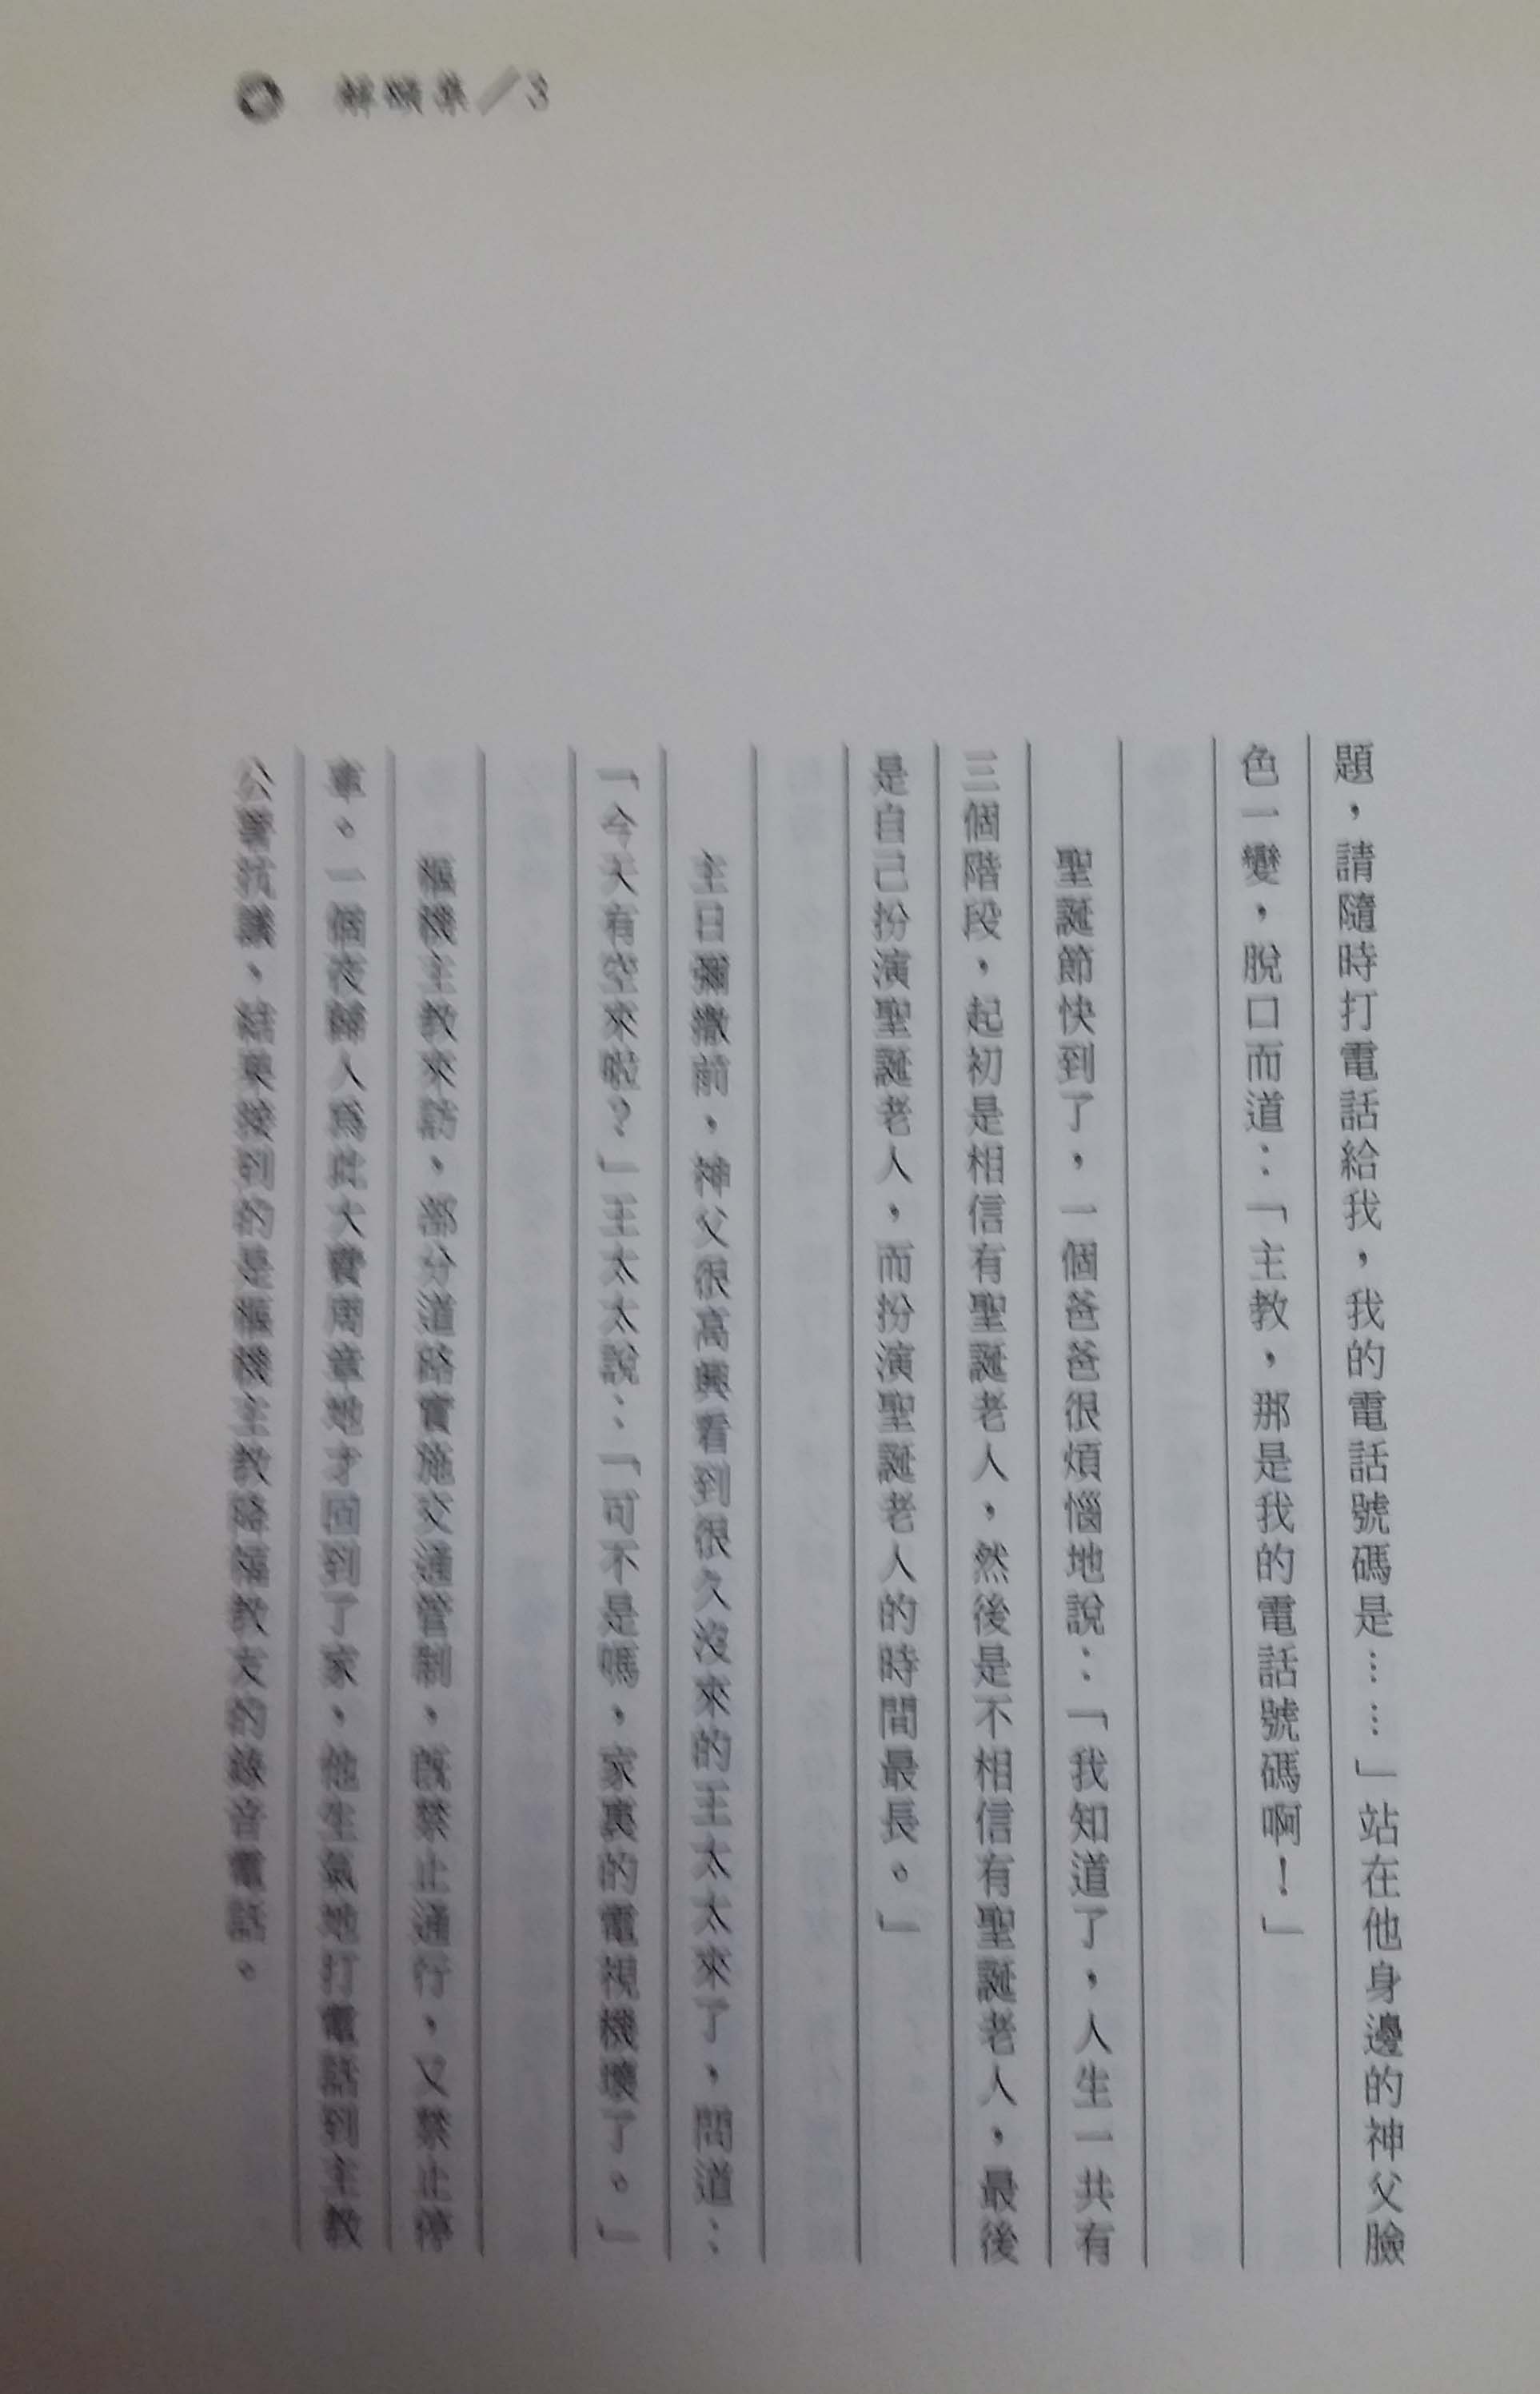 解頤集／3
題，請隨時打電話給我，我的電話號碼是……」站在他身邊的神父臉
色一變，脫口而道：「主教，那是我的電話號碼啊！」
聖誕節快到了，一個爸爸很煩惱地說：「我知道了，人生一共有
三個階段，起初是相信有聖誕老人，然後是不相信有聖誕老人，最後
是自己扮演聖誕老人，而扮演聖誕老人的時間最長。」
主日彌撒前，神父很高興看到很久沒來的王太太來了，問道：
「今天有空來啦？」王太太說：「可不是嗎，家裏的電視機壞了。」
樞機主教來訪，部分道路實施交通管制，既禁止通行，又禁止停
車。一個夜歸人為此大費周章地才回到了家，他生氣地打電話到主教
公署抗議，結果接到的是樞機主教降福教友的錄音電話。